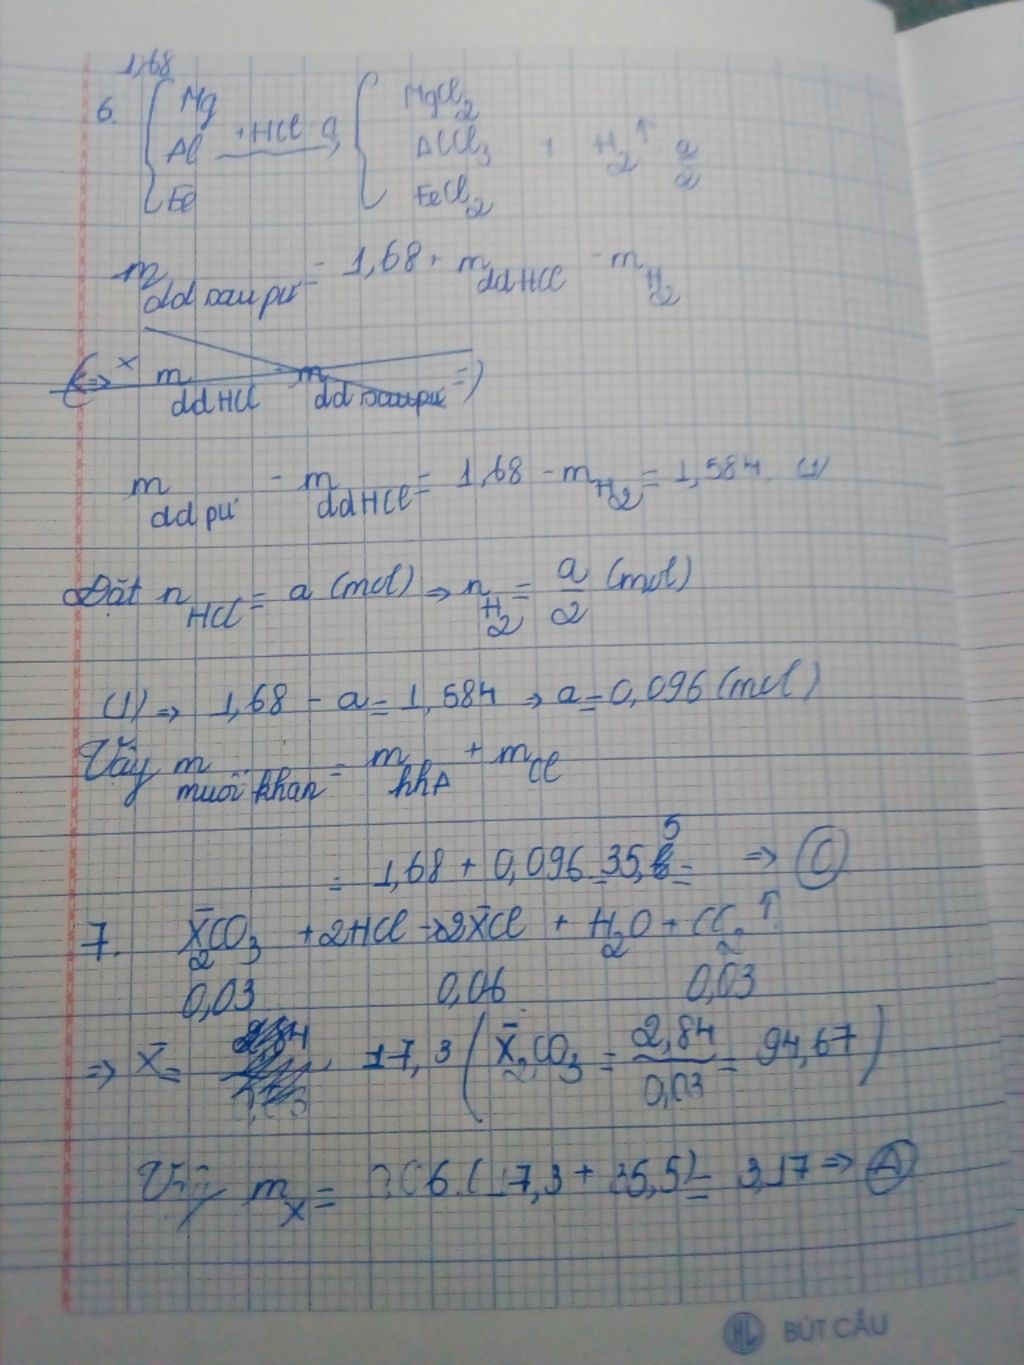 1,68
6. Mg MgCl2
Al +HCl a → AlCl3 + H2↑ a/2
Fe FeCl2
m dd sau pứ = 1,68 + m ddHCl - m H2
(=> m ddHCl - m dd sau pứ =)
m dd pứ - m ddHCl = 1,68 - m H2 = 1,584 (1)
Đặt n HCl = a (mol) => n H2 = a/2 (mol)
(1) => 1,68 - a = 1,584 => a = 0,096 (mol)
Vậy m muối khan = m hhA + m Cl
= 1,68 + 0,096.35,5 = => C
7. X̄2CO3 + 2HCl → 2X̄Cl + H2O + CO2↑
0,03 0,06 0,03
=> X̄ = 17,3 (X̄2CO3 = 2,84/0,03 = 94,67)
Vậy m X = 0,06.(17,3 + 35,5) = 3,17 => A
HL BÚT CÂU